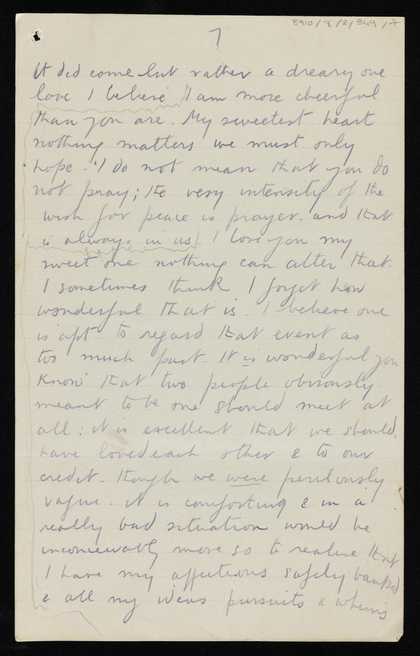 7
It did come but rather a dreary one
love I believe I am more cheerful
than you are. My sweetest heart
nothing matters we must only
hope. I do not mean that you do
not pray; the very intensity of the
wish for peace is prayer. and that
is always in us. I love you my
sweet one nothing can alter that.
I sometimes think I forget how
wonderful that is. I believe one
is apt to regard that event as
too much past. It is wonderful you
know that two people obviously
meant to be one should meet at
all: it is excellent that we should
have loved each other & to our
credit. though we were perilously
vague. it is comforting & in a
really bad situation would be
inconceivably more so to realise that
I have my affections safely banked
& all my ideas pursuits & whims